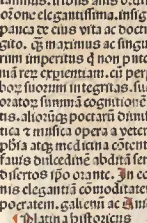 orōne elegantissima. insig
pauca de eius vita ac doct
gito. maximus ac singu
rum imperitus qͥ non pute
nia reꝝ experientiam. cū per
boꝝ suorum integritas. su
oratorꝝ summā cognitionē
tis. aliorūqꝫ poctarū diuin
tica ⁊ musica opera a veter
phīa atqꝫ medicina cētem
fauis dulcedine abdita sen
disertos ipō orante. In co
nis elegantiā cōmoditatē
pocratem. galienū ac
Platina historicus